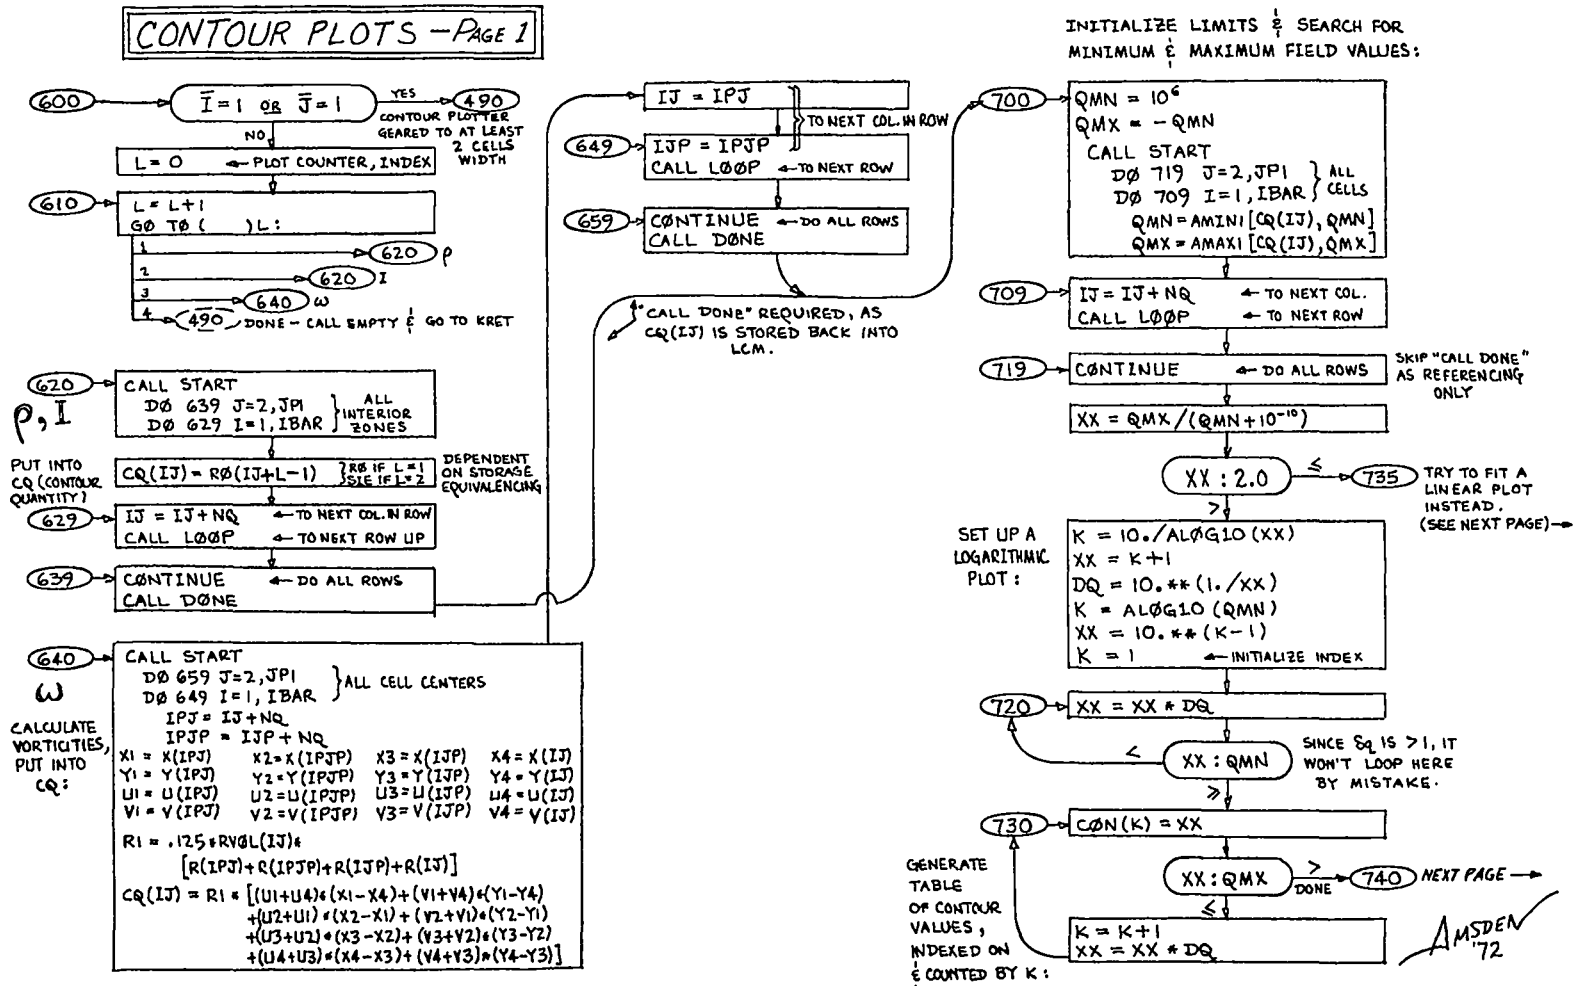 CONTOUR PLOTS - PAGE 1
600
I̅=1 OR J̅=1
YES
490
CONTOUR PLOTTER
GEARED TO AT LEAST
2 CELLS
WIDTH
NO
L = 0 ← PLOT COUNTER, INDEX
610
L = L+1
GØ TØ ( )L:
1
620 ρ
2
620 I
3
640 ω
4
490 DONE - CALL EMPTY & GO TO KRET
620
ρ, I
CALL START
DØ 639 J=2,JP1
DØ 629 I=1,IBAR
ALL
INTERIOR
ZONES
PUT INTO
CQ (CONTOUR
QUANTITY)
CQ(IJ) = RØ(IJ+L-1)
RØ IF L=1
SIE IF L=2
DEPENDENT
ON STORAGE
EQUIVALENCING
629
IJ = IJ+NQ ← TO NEXT COL. IN ROW
CALL LØØP ← TO NEXT ROW UP
639
CØNTINUE ← DO ALL ROWS
CALL DØNE
640
ω
CALCULATE
VORTICITIES,
PUT INTO
CQ:
CALL START
DØ 659 J=2,JP1
DØ 649 I=1, IBAR
ALL CELL CENTERS
IPJ = IJ+NQ
IPJP = IJP+NQ
X1 = X(IPJ) X2=X(IPJP) X3=X(IJP) X4=X(IJ)
Y1 = Y(IPJ) Y2=Y(IPJP) Y3=Y(IJP) Y4=Y(IJ)
U1 = U(IPJ) U2=U(IPJP) U3=U(IJP) U4=U(IJ)
V1 = V(IPJ) V2=V(IPJP) V3=V(IJP) V4=V(IJ)
R1 = .125*RVØL(IJ)*
[R(IPJ)+R(IPJP)+R(IJP)+R(IJ)]
CQ(IJ) = R1 * [(U1+U4)*(X1-X4)+(V1+V4)*(Y1-Y4)
+(U2+U1)*(X2-X1)+(V2+V1)*(Y2-Y1)
+(U3+U2)*(X3-X2)+(V3+V2)*(Y3-Y2)
+(U4+U3)*(X4-X3)+(V4+V3)*(Y4-Y3)]
IJ = IPJ
TO NEXT COL. IN ROW
649
IJP = IPJP
CALL LØØP ← TO NEXT ROW
659
CØNTINUE ← DO ALL ROWS
CALL DØNE
"CALL DONE" REQUIRED, AS
CQ(IJ) IS STORED BACK INTO
LCM.
INITIALIZE LIMITS & SEARCH FOR
MINIMUM & MAXIMUM FIELD VALUES:
700
QMN = 10⁶
QMX = -QMN
CALL START
DØ 719 J=2,JP1
DØ 709 I=1,IBAR
ALL
CELLS
QMN=AMIN1[CQ(IJ),QMN]
QMX=AMAX1[CQ(IJ),QMX]
709
IJ=IJ+NQ ← TO NEXT COL.
CALL LØØP ← TO NEXT ROW
719
CØNTINUE ← DO ALL ROWS
SKIP "CALL DONE"
AS REFERENCING
ONLY
XX = QMX/(QMN+10⁻¹⁰)
XX : 2.0
≤
735
TRY TO FIT A
LINEAR PLOT
INSTEAD.
(SEE NEXT PAGE)→
>
SET UP A
LOGARITHMIC
PLOT:
K = 10./ALØG10(XX)
XX = K+1
DQ = 10.**(1./XX)
K = ALØG10(QMN)
XX = 10.**(K-1)
K = 1 ← INITIALIZE INDEX
720
XX = XX * DQ
<
XX : QMN
≥
SINCE δq IS >1, IT
WON'T LOOP HERE
BY MISTAKE.
730
CØN(K) = XX
XX : QMX
>
DONE
740
NEXT PAGE →
≤
GENERATE
TABLE
OF CONTOUR
VALUES,
INDEXED ON
& COUNTED BY K:
K = K+1
XX = XX * DQ
AMSDEN
'72